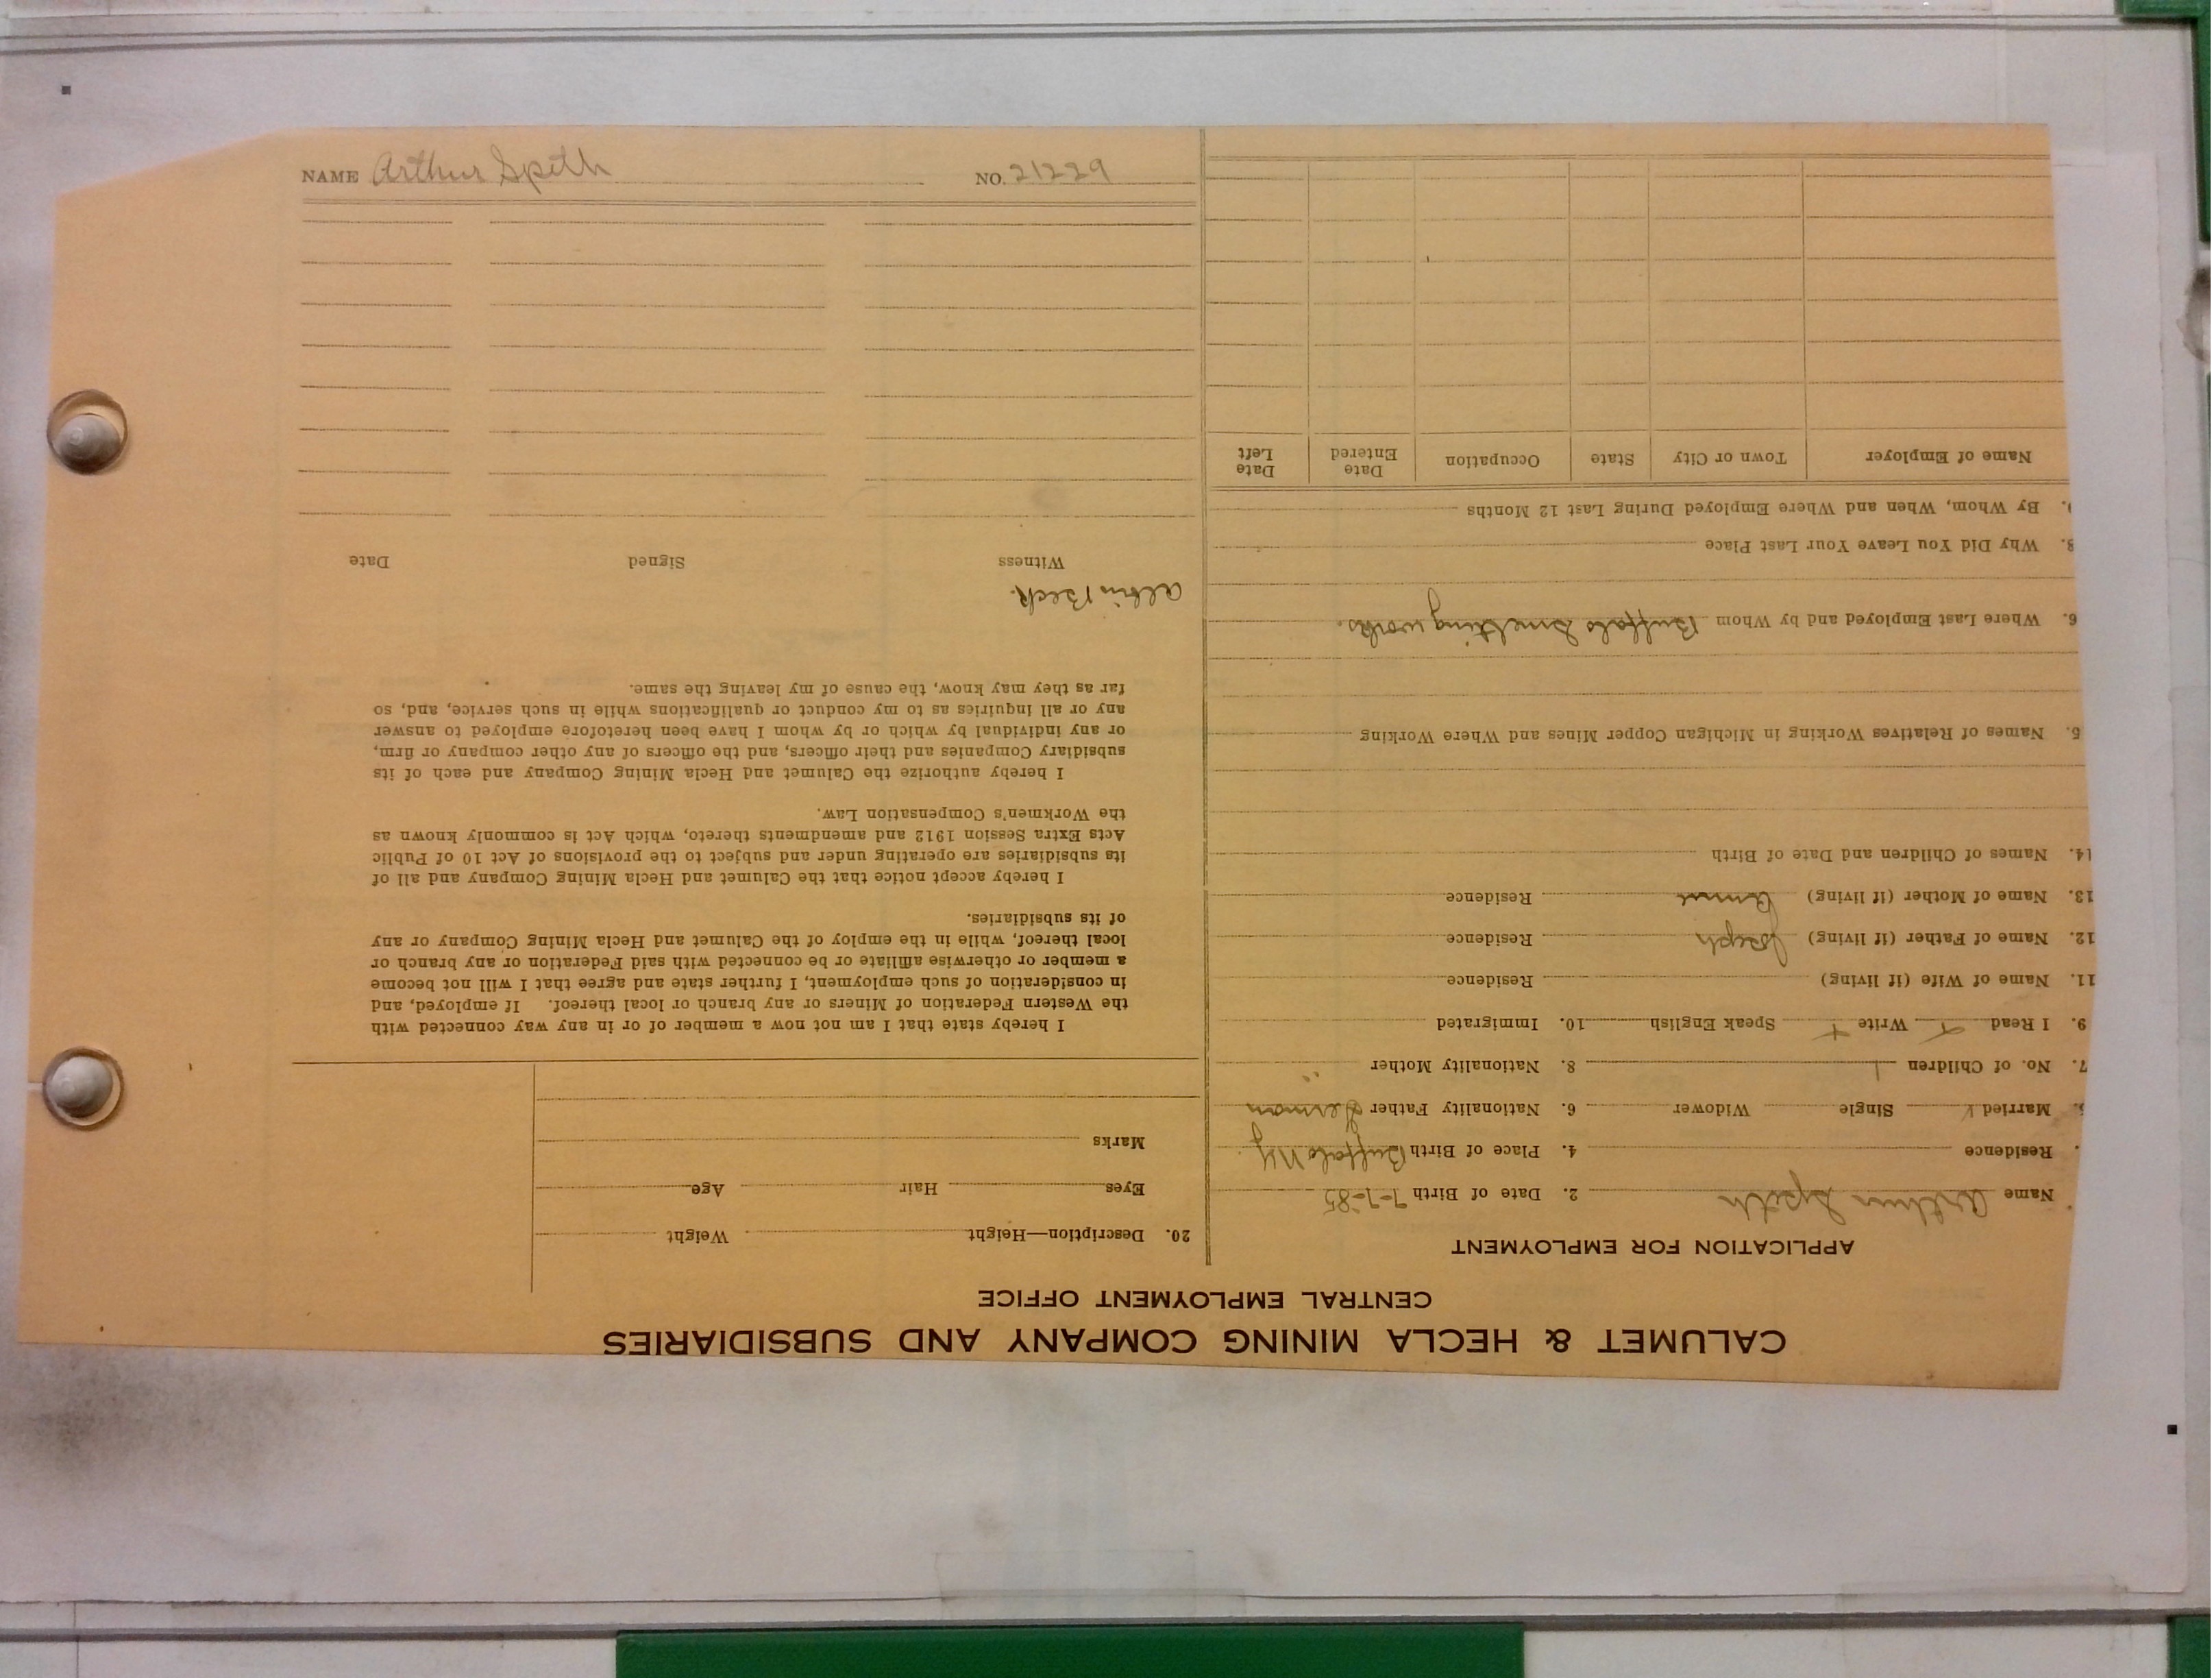 CALUMET & HECLA MINING COMPANY AND SUBSIDIARIES
CENTRAL EMPLOYMENT OFFICE
APPLICATION FOR EMPLOYMENT
Name Arthur Speth 2. Date of Birth 7-7-85
Residence 4. Place of Birth Buffalo NY
Married Single Widower 6. Nationality Father German
7. No. of Children 1 8. Nationality Mother "
9. I Read x Write x Speak English 10. Immigrated
11. Name of Wife (if living) Residence
12. Name of Father (if living) Joseph Residence
13. Name of Mother (if living) Anna Residence
14. Names of Children and Date of Birth
5. Names of Relatives Working in Michigan Copper Mines and Where Working
6. Where Last Employed and by Whom Buffalo Smelting works.
8. Why Did You Leave Your Last Place
9. By Whom, When and Where Employed During Last 12 Months
Name of Employer Town or City State Occupation Date Entered Date Left
20. Description—Height Weight
Eyes Hair Age
Marks
I hereby state that I am not now a member of or in any way connected with
the Western Federation of Miners or any branch or local thereof. If employed, and
in consideration of such employment, I further state and agree that I will not become
a member or otherwise affiliate or be connected with said Federation or any branch or
local thereof, while in the employ of the Calumet and Hecla Mining Company or any
of its subsidiaries.
I hereby accept notice that the Calumet and Hecla Mining Company and all of
its subsidiaries are operating under and subject to the provisions of Act 10 of Public
Acts Extra Session 1912 and amendments thereto, which Act is commonly known as
the Workmen's Compensation Law.
I hereby authorize the Calumet and Hecla Mining Company and each of its
subsidiary Companies and their officers, and the officers of any other company or firm,
or any individual by which or by whom I have been heretofore employed to answer
any or all inquiries as to my conduct or qualifications while in such service, and, so
far as they may know, the cause of my leaving the same.
Albin Beck.
Witness Signed Date
NAME Arthur Speth NO. 21229